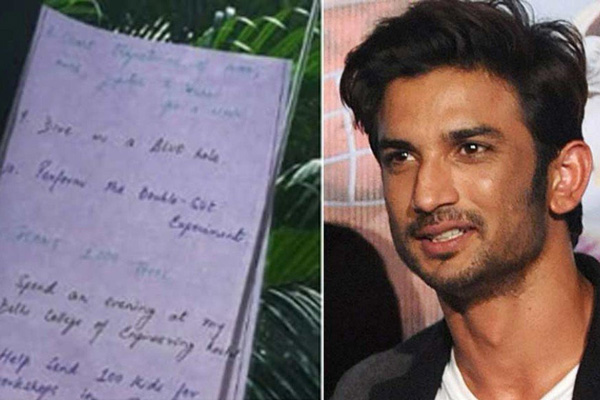 of
for a week
9. Dive in a Blue hole
10. Perform the Double-Slit
Experiment
Plant 1,000 Trees
Spend an evening at my
Delhi College of Engineering hostel
Help Send 100 Kids for
workshops in